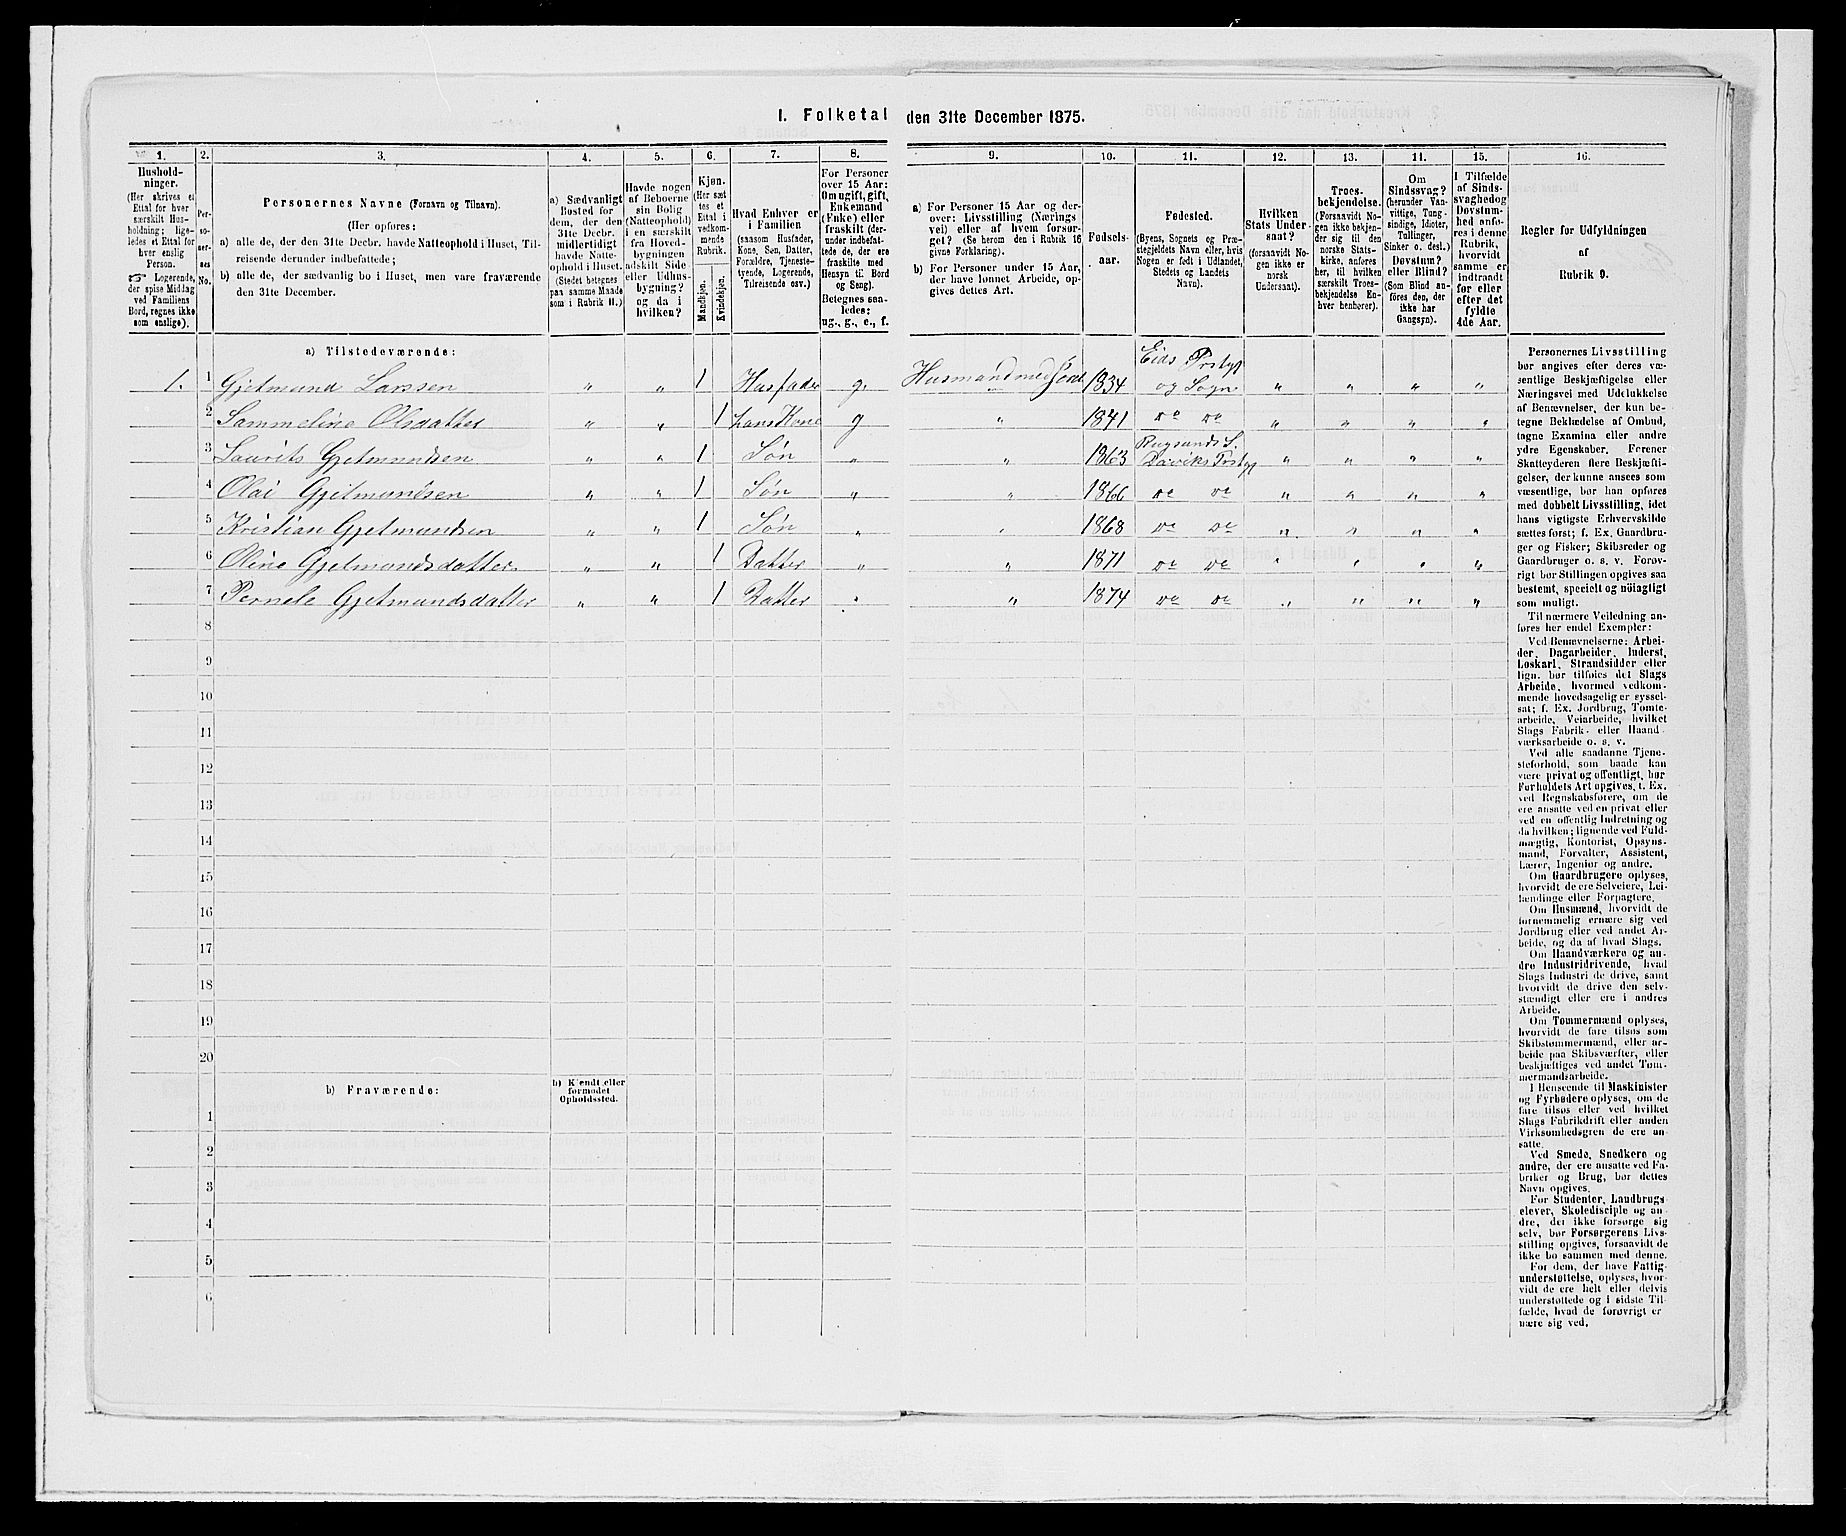 I. Folketal den 31te December 1875.
1. 2. 3. 4. 5. 6. 7. 8. 9. 10. 11. 12. 13. 14. 15. 16.
Hushold-
ninger.
(Her skrives et
Ettal for hver
særskilt Hus-
holdning; lige-
ledes et Ettal for
hver enslig
Person.
☞ Logerende,
der spise Middag
ved Familiens
Bord, regnes ikke
som enslige).
Per-
so-
ner-
nes
No.
Personernes Navne (Fornavn og Tilnavn).
(Her opføres:
a) alle de, der den 31te Decbr. havde Natteophold i Huset, Til-
reisende derunder indbefattede;
b) alle de, der sædvanlig bo i Huset, men vare fraværende
den 31te December.
a) Sædvanligt
Bosted for
dem, der den
31te Decbr.
midlertidigt
havde Natte-
ophold i Huset.
(Stedet betegnes
paa samme Maade
som i Rubrik 11.)
Havde nogen
af Beboerne
sin Bolig
(Natteophold)
i en særskilt
fra Hoved-
bygningen
adskilt Side
eller Udhus-
bygning?
og da i
hvilken?
Kjøn.
(Her sæt-
tes et
Ettal i
vedkom-
mende
Rubrik.
Mandkjøn.
Kvindekjøn.
Hvad Enhver er
i Familien
(saasom Husfader,
Kone, Søn, Datter,
Forældre, Tjeneste-
tyende, Logerende,
Tilreisende osv.)
For Personer
over 15 Aar:
Om ugift, gift,
Enkemand
(Enke) eller
fraskilt (der-
under indbefat-
tede de, der ere
fraskilte med
Hensyn til Bord
og Seng).
Betegnes saa-
ledes:
ug., g., e., f.
a) For Personer 15 Aar og der-
over: Livsstilling (Nærings
vei) eller af hvem forsør-
get? (Se herom den i Rubrik 16
givne Forklaring).
b) For Personer under 15 Aar,
der have lønnet Arbeide, op-
gives dettes Art.
Fødsels-
aar.
Fødested.
(Byens, Sognets og Præ-
stegjeldets Navn eller, hvis
Nogen er født i Udlandet,
Stedets og Landets
Navn).
Hvilken
Stats Under-
saat?
(forsaavidt No-
gen ikke er
norsk
Undersaat).
Troes-
bekjendelse.
(Forsaavidt No-
gen ikke bekjen-
der sig til den
norske Stats-
kirke, anføres
her, til hvilken
særskilt Troes-
bekjendelse En-
hver henhører).
Om
Sindssvag?
(herunder Van-
vittige, Tung-
sindige, Idioter,
Tullinger,
Sinker o. desl.)
Døvstum?
eller Blind?
(Som Blind an-
føres den, der
ikke har
Gangsyn).
I Tilfælde
af Sinds-
svaghed og
Døvstum-
hed anfø-
res i denne
Rubrik,
hvorvidt
samme er
indtraadt
før eller
efter det
fyldte
4de Aar.
Regler for Udfyldningen
af
Rubrik 9.
a) Tilstedeværende:
1. 1 Gjetmund Larssen " " 1 Husfader g. Husmand med Jord 1834 Eids Prstgj og Sogn " " " "
2 Sammeline Olsdatter " " 1 hans Kone g " 1841 do do " " " "
3 Laurits Gjetmundsen " " 1 Søn " " 1863 Rugsunds S. Daviks Prstgj " " " "
4 Olai Gjetmundsen " " 1 Søn " " 1866 do do " " " "
5 Kristian Gjetmundsen " " 1 Søn " " 1868 do do " " " "
6 Oline Gjetmundsdatter " " 1 Datter " " 1871 do do " " " "
7 Pernele Gjetmundsdatter " " 1 Datter " " 1874 do do " " " "
8
9
10
11
12
13
14
15
16
17
18
19
20
b) Fraværende:
b) Kjendt eller
formodet
Opholdssted.
1
2
3
4
5
6
Personernes Livsstilling
bør angives efter deres væ-
sentlige Beskjæftigelse eller
Næringsvei med Udelukkelse
af Benævnelser, der kun be-
tegne Beklædelse af Ombud,
tagne Examina eller andre
ydre Egenskaber. Forener
Skatteyderen flere Beskjæfti-
gelser, der kunne ansees som
væsentlige, bør han opføres
med dobbelt Livsstilling, idet
hans vigtigste Erhvervskilde
sættes først; f. Ex. Gaardbru-
ger og Fisker; Skibsreder og
Gaardbruger o. s. v. Forøv-
rigt bør Stillingen opgives saa
bestemt, specielt og nöiagtigt
som muligt.
Til nærmere Veiledning an-
føres her endel Exempler:
Ved Benævnelserne: Arbei-
der, Dagarbeider, Inderst,
Løskarl, Strandsidder eller
lign. bør tilføies det Slags
Arbeide, hvormed vedkom-
mende hovedsagelig er syssel-
sat; f. Ex. Jordbrug, Tomte-
arbeide, Veiarbeide, hvilket
Slags Fabrik- eller Haand-
værksarbeide o. s. v.
Ved alle saadanne Tjene-
steforhold, som baade kan
være privat og offentligt, bør
Forholdets Art opgives, t. Ex.
ved Regnskabsførere, om de
ere ansatte ved en privat eller
ved en offentlig Indretning og
da hvilken; lignende ved Fuld-
mægtig, Kontorist, Opsyns-
mand, Forvalter, Assistent,
Lærer, Ingeniør og andre.
Om Gaardbrugere oplyses,
hvorvidt de ere Selveiere, Lei-
lændinge eller Forpagtere.
Om Husmænd, hvorvidt de
fornemmelig ernære sig ved
Jordbrug eller ved andet Ar-
beide, og da af hvad Slags.
Om Haandværkere og an-
dre Industridrivende, hvad
Slags Industri de drive, samt
hvorvidt de drive den selv-
stændigt eller ere i andres
Arbeide.
Om Tømmermænd oplyses,
hvorvidt de fare tilsøs som
Skibstømmermænd, eller ar-
beide paa Skibsværfter, eller
beskjæftiges ved andet Tøm-
mermandsarbeide.
I Henseende til Maskinister
og Fyrbødere oplyses, om de
fare tilsøs eller ved hvilket
Slags Fabrikdrift eller anden
Virksomhedsgren de ere an-
satte.
Ved Smede, Snedkere og
andre, der ere ansatte ved Fa-
briker og Brug, bør dettes
Navn opgives.
For Studenter, Landbrugs-
elever, Skoledisciple og an-
dre, der ikke forsørge sig
selv, bør Forsørgerens Livs-
stilling opgives, forsaavidt de
ikke bo sammen med denne.
For dem, der have Fattig-
understøttelse, oplyses, hvor-
vidt de ere helt eller delvis
understøttede og i sidste Til-
fælde, hvad de forøvrigt er-
nære sig ved.